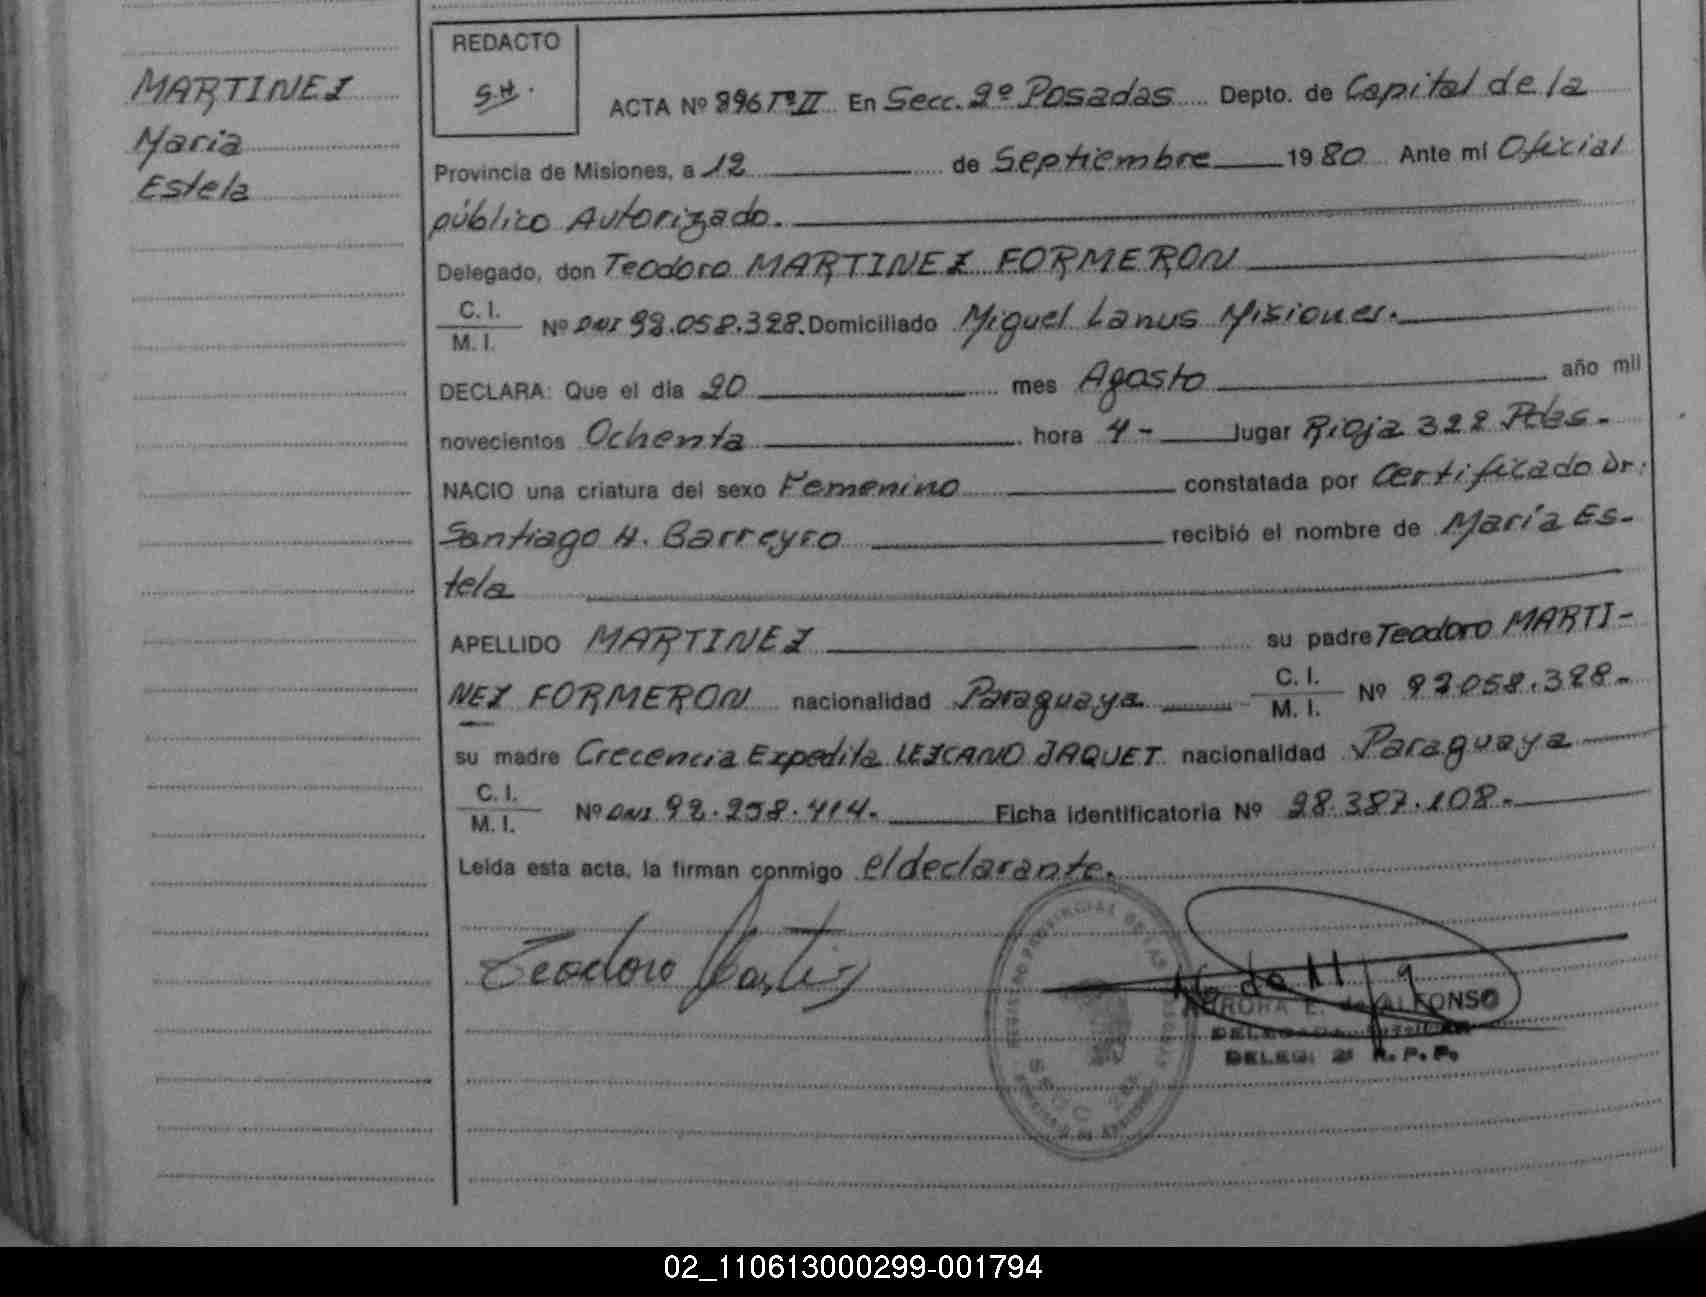 MARTINEZ
Maria
Estela
REDACTO
S.H.
ACTA Nº 896 Tº II En Secc. 2º Posadas Depto. de Capital de la
Provincia de Misiones, a 12 de Septiembre 1980 Ante mí Oficial
público Autorizado.
Delegado, don Teodoro MARTINEZ FORMERON
C. I.
M. I.
Nº DNI 92.058.328. Domiciliado Miguel Lanus Misiones.
DECLARA: Que el día 20 mes Agosto año mil
novecientos Ochenta hora 4- lugar Rioja 322 Pdas.
NACIO una criatura del sexo Femenino constatada por Certificado Dr.
Santiago H. Barreyro recibió el nombre de María Es-
tela
APELLIDO MARTINEZ su padre Teodoro MARTI-
NEZ FORMERON nacionalidad Paraguaya C. I.
M. I.
Nº 92058.328-
su madre Crecencia Expedita LEZCANO JAQUET nacionalidad Paraguaya
C. I.
M. I.
Nº DNI 92.258.414. Ficha identificatoria Nº 28.387.108-
Leída esta acta, la firman conmigo el declarante.
Teodoro Martinez
REGISTRO PROVINCIAL DE LAS PERSONAS
AURORA E. de ALFONSO
DELEGADA
DELEG. 2ª R. P. P.
02_110613000299-001794